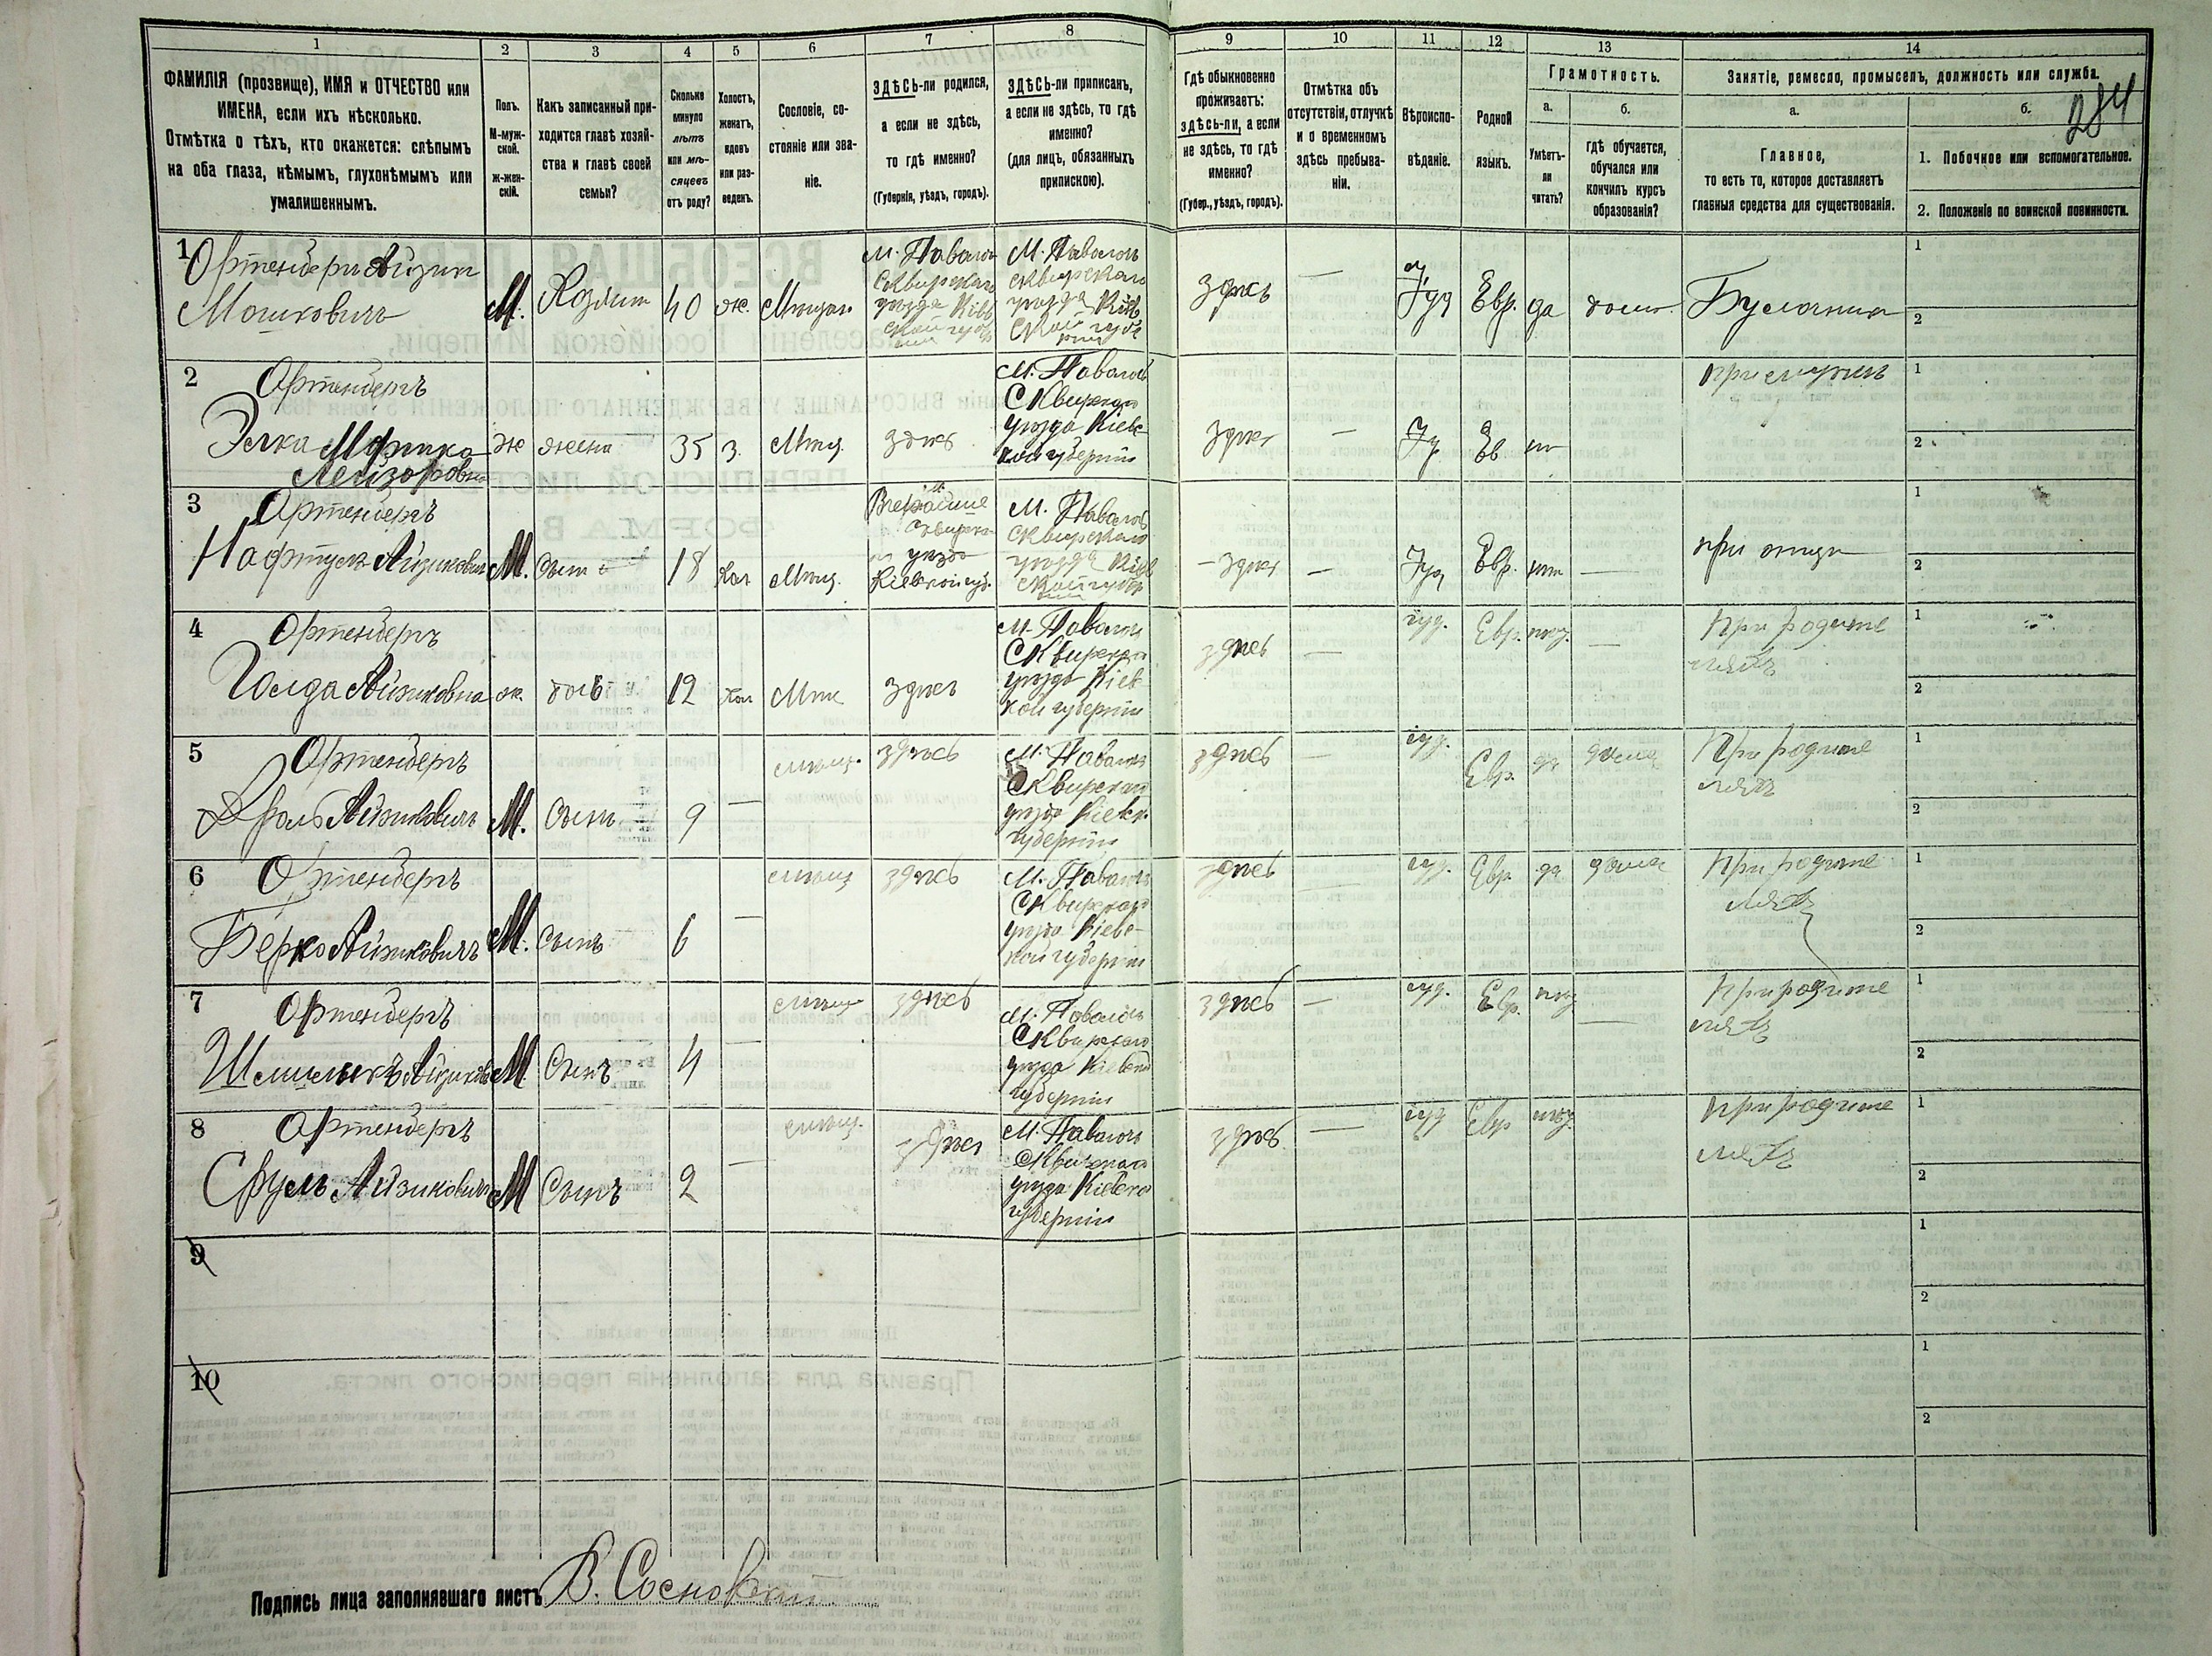 1 2 3 4 5 6 7 8 9 10 11 12 13 14
ФАМИЛІЯ (прозвище), ИМЯ и ОТЧЕСТВО или
ИМЕНА, если ихъ нѣсколько.
Отмѣтка о тѣхъ, кто окажется: слѣпымъ
на оба глаза, нѣмымъ, глухонѣмымъ или
умалишеннымъ.
Полъ.
М-муж-
ской.
ж-жен-
скій.
Какъ записанный при-
ходится главѣ хозяй-
ства и главѣ своей
семьи?
Сколько
минуло
лѣтъ
или мѣ-
сяцевъ
отъ роду?
Холостъ,
женатъ,
вдовъ
или раз-
веденъ.
Сословіе, со-
стояніе или зва-
ніе.
ЗДѢСЬ-ли родился,
а если не здѣсь,
то гдѣ именно?
(Губернія, уѣздъ, городъ).
ЗДѢСЬ-ли приписанъ,
а если не здѣсь, то гдѣ
именно?
(для лицъ, обязанныхъ
припискою).
Гдѣ обыкновенно
проживаетъ:
здѣсь-ли, а если
не здѣсь, то гдѣ
именно?
(Губер., уѣздъ, городъ).
Отмѣтка объ
отсутствіи, отлучкѣ
и о временномъ
здѣсь пребыва-
ніи.
Вѣроиспо-
вѣданіе.
Родной
языкъ.
Грамотность.
а.
Умѣетъ-
ли
читать?
б.
гдѣ обучается,
обучался или
кончилъ курсъ
образованія?
Занятіе, ремесло, промыселъ, должность или служба.
а.
Главное,
то есть то, которое доставляетъ
главныя средства для существованія.
б.
284
1. Побочное или вспомогательное.
2. Положеніе по воинской повинности.
1
Ортенбергъ Айзикъ
Мошковичъ
М.
Хозяин
40
ж.
Мѣщан
м. Паволоч
Сквирскаго
уѣзда Кіев
ской губер
ніи
М. Паволоч
Сквирскаго
уѣзда Кіев
ской губер
ніи
здѣсь
—
Іуд
Евр.
да
дома
Булочник
1
2
2
Ортенбергъ
Элка
Лейзоровна
ж
жена
35
з.
Мѣщ.
здѣсь
М. Паволоч
Сквирскаго
уѣзда Кіевс
кой губерніи
здѣсь
—
Іу
Ев
при мужѣ
1
2
3
Ортенбергъ
Нафтула Айзикович
М.
Сын
18
Хол
Мѣщ.
Сквирск
уѣзда
Кіевской губ.
М. Паволоч
Сквирскаго
уѣзда Кіев
ской губер
ніи
здѣсь
—
Іуд
Евр.
—
при отцѣ
1
2
4
Ортенбергъ
Голда Айзиковна
ж
дочь
12
Хол
Мѣщ
здѣсь
М. Паволоч
Сквирскаго
уѣзда Кіевс
кой губерніи
здѣсь
—
іуд.
Евр.
—
При родите
ляхъ
1
2
5
Ортенбергъ
Сроль Айзиковичъ
М.
Сынъ
9
—
мѣщ.
здѣсь
М. Паволоч
Сквирскаго
уѣзда Кіевск
губерніи
здѣсь
—
іуд.
Евр.
да
дома
При родите
ляхъ
1
2
6
Ортенбергъ
Берко Айзиковичъ
М.
Сынъ
6
—
мѣщ
здѣсь
М. Паволоч
Сквирскаго
уѣзда Кіевс-
кой губерніи
здѣсь
—
іуд.
Евр
да
дома
При родите
ляхъ
1
2
7
Ортенбергъ
Шмилыкъ Айзиков
М
Сынъ
4
—
мѣщ
здѣсь
М. Паволоч
Сквирскаго
уѣзда Кіевск
губерніи
здѣсь
—
іуд.
Евр.
—
При родите
ляхъ
1
2
8
Ортенбергъ
Сруль Айзикович
М
Сынъ
2
—
мѣщ.
здѣсь
М. Паволоч
Сквирскаго
уѣзда Кіевск
губерніи
здѣсь
—
іуд
Евр
При родите
ляхъ
1
2
9
1
2
10
1
2
Подпись лица заполнявшаго листъ В. Сосновский